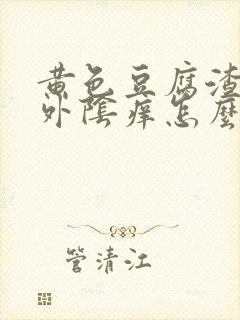 黄色豆腐渣
外陰痒怎麼
管清江